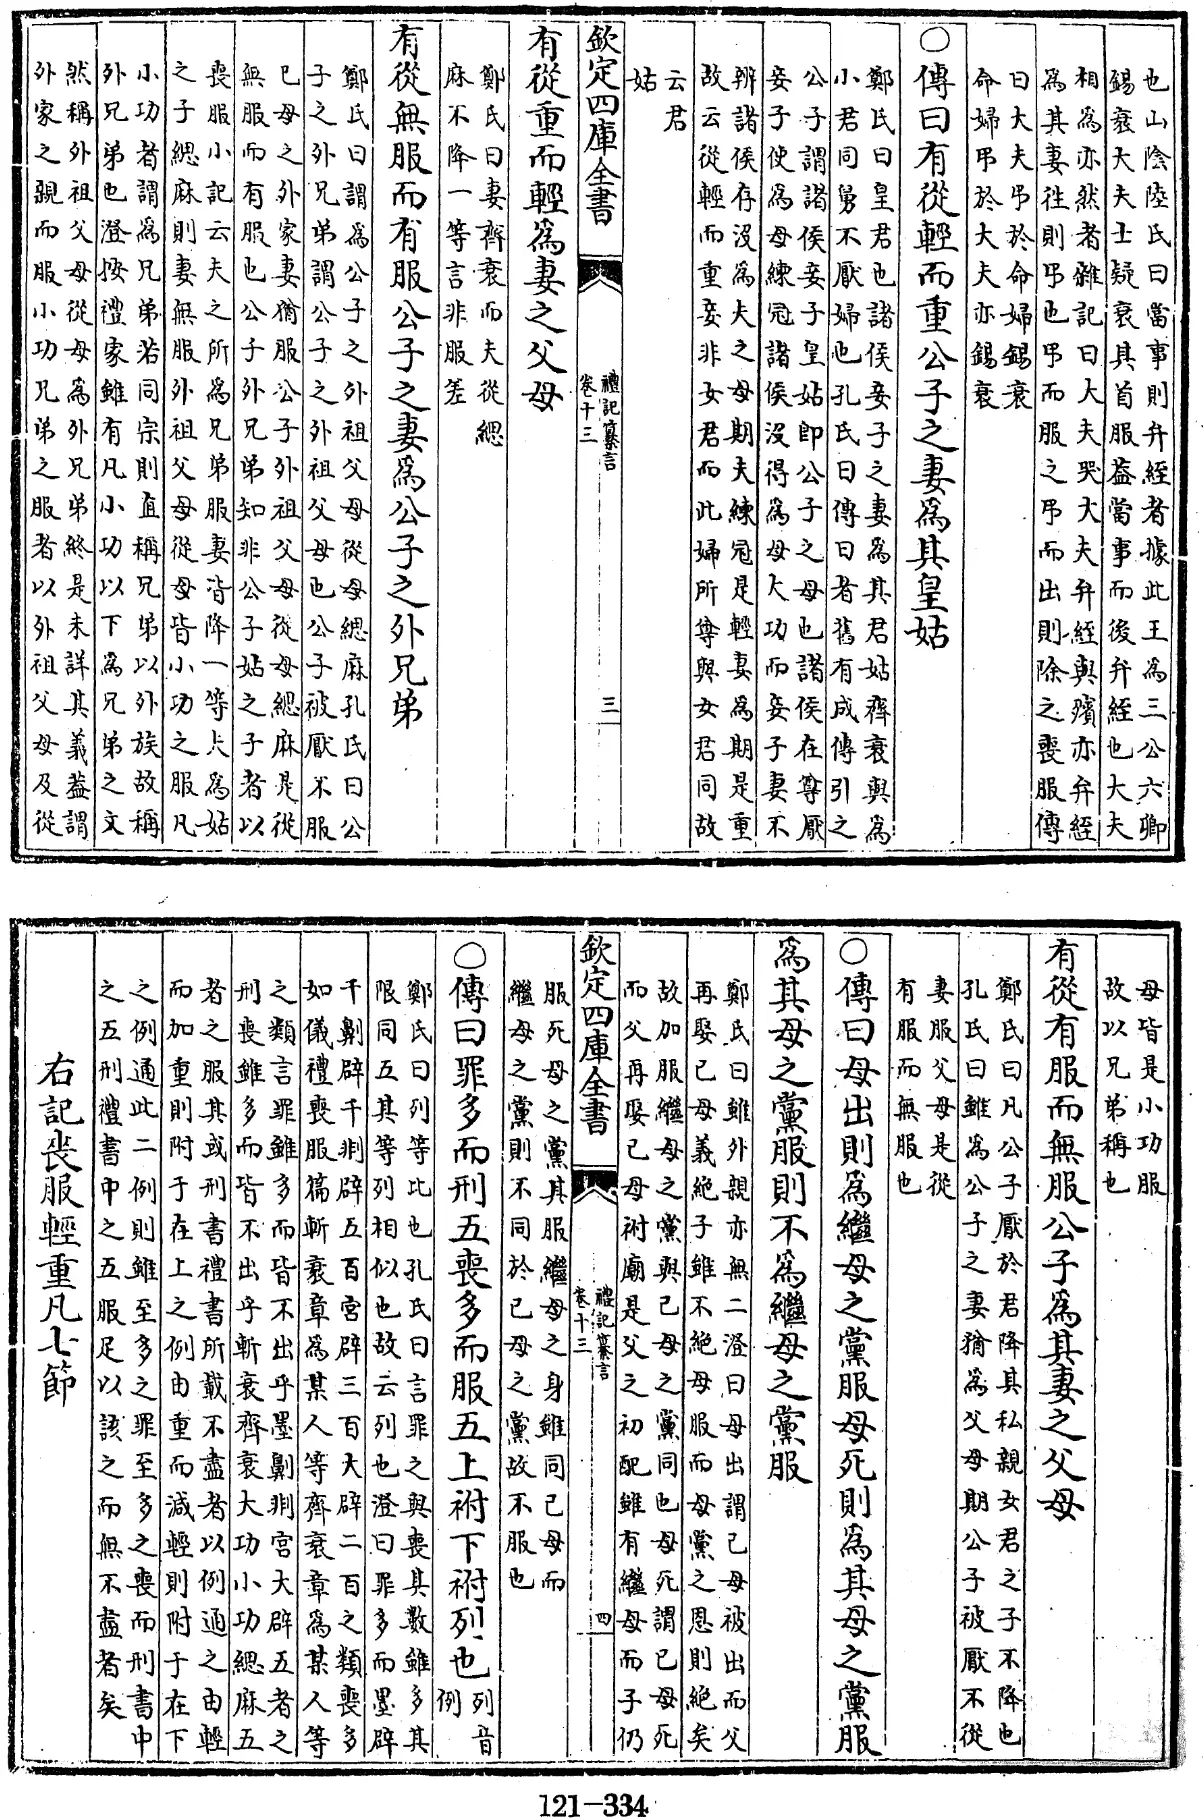 也山陰陸氏曰當事則弁絰者據此王為三公六卿
錫衰大夫士疑衰其首服葢當事而後弁絰也大夫
相為亦然者雜記曰大夫哭大夫弁絰與殯亦弁絰
為其妻徃則弔也弔而服之弔而出則除之喪服傳
曰大夫弔於命婦錫衰
命婦弔於大夫亦錫衰
○傳曰有從輕而重公子之妻為其皇姑
鄭氏曰皇君也諸侯妾子之妻為其君姑齊衰與為
小君同舅不厭婦也孔氏曰傳曰者舊有成傳引之
公子謂諸侯妾子皇姑即公子之母也諸侯在尊厭
妾子使為母練冠諸侯沒得為母大功而妾子妻不
辨諸侯存沒為夫之母期夫練冠是輕妻為期是重
故云從輕而重妾非女君而此婦所尊與女君同故
云君
姑
欽定四庫全書
禮記纂言
卷十三
三
有從重而輕為妻之父母
鄭氏曰妻齊衰而夫從緦
麻不降一等言非服差
有從無服而有服公子之妻為公子之外兄弟
鄭氏曰謂為公子之外祖父母從母緦麻孔氏曰公
子之外兄弟謂公子之外祖父母也公子被厭不服
已母之外家妻猶服公子外祖父母從母緦麻是從
無服而有服也公子外兄弟知非公子姑之子者以
喪服小記云夫之所為兄弟服妻皆降一等夫為姑
之子緦麻則妻無服外祖父母從母皆小功之服凡
小功者謂為兄弟若同宗則直稱兄弟以外族故稱
外兄弟也澄按禮家雖有凡小功以下為兄弟之文
然稱外祖父母從母為外兄弟終是未詳其義葢謂
外家之親而服小功兄弟之服者以外祖父母及從
母皆是小功服
故以兄弟稱也
有從有服而無服公子為其妻之父母
鄭氏曰凡公子厭於君降其私親女君之子不降也
孔氏曰雖為公子之妻猶為父母期公子被厭不從
妻服父母是從
有服而無服也
○傳曰母出則為繼母之黨服母死則為其母之黨服
為其母之黨服則不為繼母之黨服
鄭氏曰雖外親亦無二澄曰母出謂已母被出而父
再娶已母義絶子雖不絶母服而母黨之恩則絶矣
故加服繼母之黨與已母之黨同也母死謂已母死
而父再娶已母祔廟是父之初配雖有繼母而子仍
服死母之黨其服繼母之身雖同已母而
繼母之黨則不同於已母之黨故不服也
欽定四庫全書
禮記纂言
卷十三
四
○傳曰罪多而刑五喪多而服五上祔下祔列也
列音
例
鄭氏曰列等比也孔氏曰言罪之與喪其數雖多其
限同五其等列相似也故云列也澄曰罪多而墨辟
千劓辟千剕辟五百宮辟三百大辟二百之類喪多
如儀禮喪服篇斬衰章為某人等齊衰章為某人等
之類言罪雖多而皆不出乎墨劓剕宮大辟五者之
刑喪雖多而皆不出乎斬衰齊衰大功小功緦麻五
者之服其或刑書禮書所載不盡者以例通之由輕
而加重則附于在上之例由重而減輕則附于在下
之例通此二例則雖至多之罪至多之喪而刑書中
之五刑禮書中之五服足以該之而無不盡者矣
右記喪服輕重凡七節
121-334